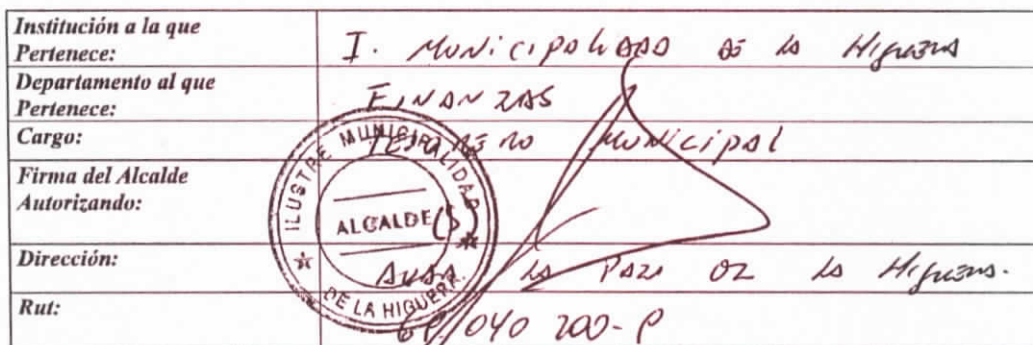 Institución a la que
Pertenece: I. Municipalidad de la Higuera
Departamento al que
Pertenece: FINANZAS
Cargo: Tesorero Municipal
Firma del Alcalde
Autorizando:
ILUSTRE MUNICIPALIDAD
ALCALDE (S)
DE LA HIGUERA
Dirección: Avda. la Paz de la Higuera.
Rut: 040 200-